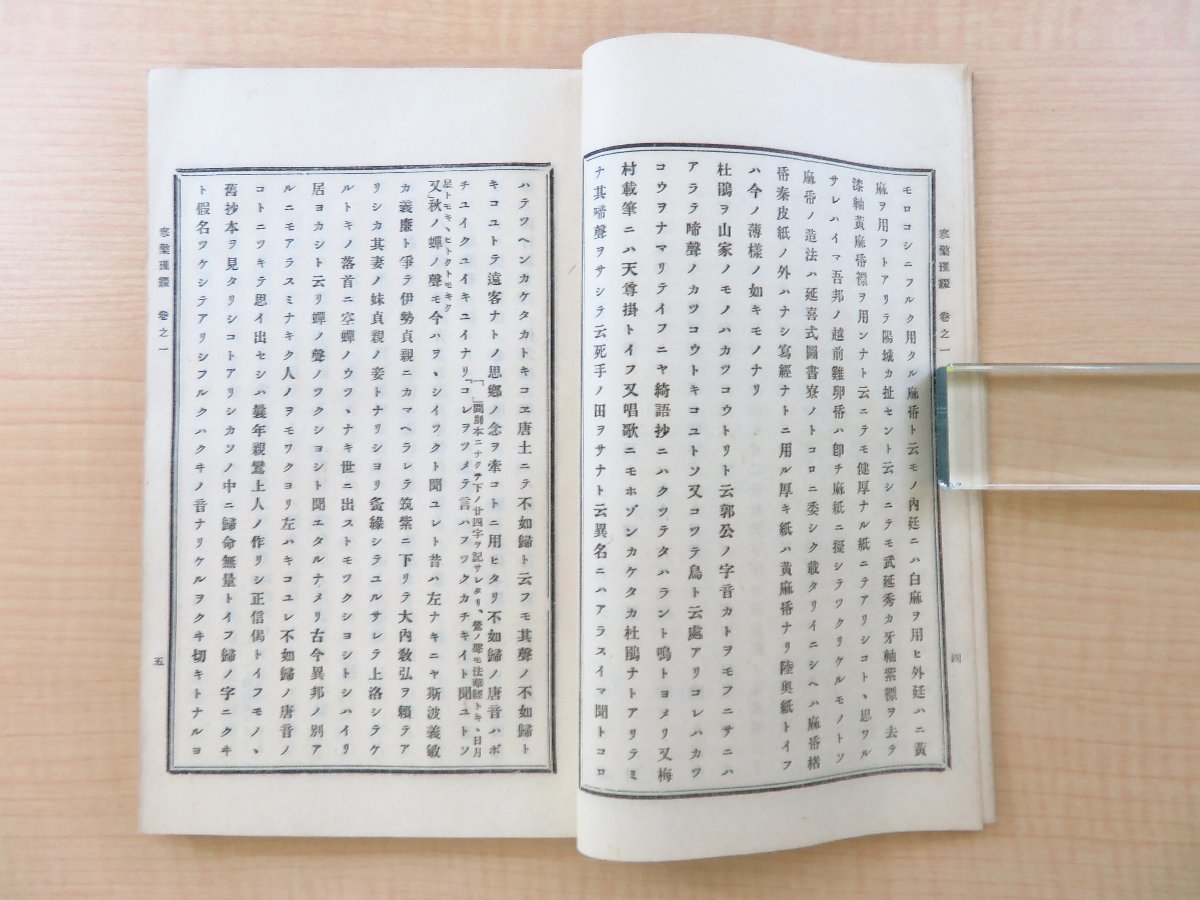 寒檠璅綴 卷之一
四
モロコシニフルク用タル麻帋ト云モノ內廷ニハ白麻ヲ用ヒ外廷ハニ黃
麻ヲ用フトアリラ陽城カ扯セント云シニテモ武延秀カ牙軸紫褾ヲ去テ
漆軸黃麻帋褾ヲ用ンナト云ニテモ健厚ナル紙ニテアリシコトヽ思ワル
サレハイマ吾邦ノ越前雞卵帋ハ卽チ麻紙ニ擬シテツクリケルモノトソ
麻帋ノ造法ハ延喜式圖書寮ノトコロニ委シク載タリイニシヘハ麻帋楮
帋秦皮紙ノ外ハナシ寫經ナトニ用ル厚キ紙ハ黃麻帋ナリ陸奥紙トイフ
ハ今ノ薄樣ノ如キモノナリ
杜鵑ヲ山家ノモノハカツコウトリト云郭公ノ字音カトヲモフニサニハ
アラテ啼聲ノカツコウトキコユトソ又コワテ鳥ト云處アリコレハカツ
コウヲナマリテイフニヤ綺語抄ニハクワラタハラント鳴トヨメリ又梅
村載筆ニハ天尊掛トイフ又唱歌ニモホゾンカケタカ杜鵑ナトアリテミ
ナ其啼聲ヲサシテ云死手ノ田ヲサナト云異名ニハアラスイマ聞トコロ
ハテツヘンカケタカトキコヱ唐土ニテ不如歸ト云フモ其聲ノ不如歸ト
キコユトテ遠客ナトノ思鄕ノ念ヲ牽コトニ用ヒタリ不如歸ノ唐音ハポ
チユイクユイキユイナリ『コレヲツメテ言ハフツクカチキイト聞ユトソ
「『』間別本ニナクテ下ノ廿四字ヲ記サレタリ、鶯ノ聲モ法華經トキヽ日月
星トモキヽヒトクトモキク
又秋ノ蟬ノ聲モ今ハヲヽシイツクト聞ユレト昔ハ左ナキニヤ斯波義敏
カ義廉ト爭テ伊勢貞親ニカマヘラレテ筑紫ニ下リテ大內敎弘ヲ賴テア
リシカ其妻ノ妹貞親ノ妾トナリシヨリ夤緣シテユルサレテ上洛シテケ
ルトキノ落首ニ空蟬ノウツヽナキ世ニ出ストモツクシヨシトシハイリ
居ヨカシト云リ蟬ノ聲ノツクシヨシト聞エタルナメリ古今異邦ノ別ア
ルニモアラスミナキク人ノヲモワクヨリ左ハキコユレ不如歸ノ唐音ノ
コトニツキテ思イ出セシハ曩年親鸞上人ノ作リシ正信偈トイフモノヽ
舊抄本ヲ見タリシコトアリシカソノ中ニ歸命無量トイフ歸ノ字ニクヰ
ト假名ツケシテアリシフルクハクヰノ音ナリケルヲクヰ切キトナルヨ
寒檠璅綴 卷之一
五